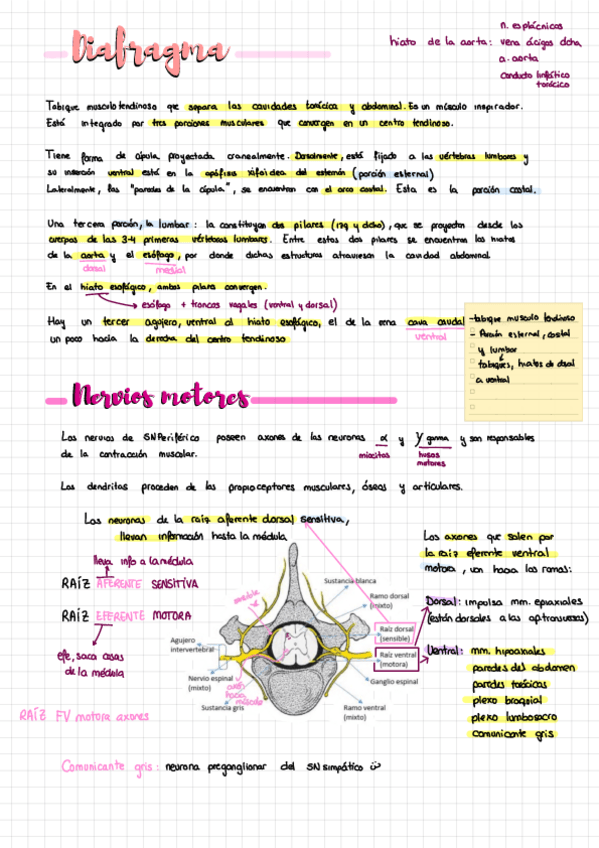 Diafragma
hiato de la aorta:
n. esplácnicos
vena ácigos dcha
a. aorta
conducto linfático
torácico
Tabique musculotendinoso que separa las cavidades torácica y abdominal. Es un músculo inspirador.
Está integrado por tres porciones musculares que convergen en un centro tendinoso.
Tiene forma de cúpula proyectada cranealmente. Dorsalmente, está fijado a las vértebras lumbares y
su inserción ventral está en la apófisis xifoidea del esternón (porción esternal)
Lateralmente, las "paredes de la cúpula", se encuentran con el arco costal. Esta es la porción costal.
Una tercera porción, la lumbar: la constituyen dos pilares (izq y dcho), que se proyectan desde los
cuerpos de las 3-4 primeras vértebras lumbares. Entre estos dos pilares se encuentran los hiatos
de la aorta y el esófago, por donde dichas estructuras atraviesan la cavidad abdominal
dorsal medial
En el hiato esofágico, ambos pilares convergen.
esófago + troncos vagales (ventral y dorsal)
Hay un tercer agujero, ventral al hiato esofágico, el de la vena cava caudal
ventral
un poco hacia la derecha del centro tendinoso
-tabique musculo tendinoso
- Porción esternal, costal
y lumbar
tabiques, hiatos de dosal
a ventral
Nervios motores
Los nervios de SNPeriférico poseen axones de las neuronas α y γ gamma y son responsables
miocitos husos
motores
de la contracción muscular.
Las dendritas proceden de los propioceptores musculares, óseos y articulares.
Las neuronas de la raíz aferente dorsal sensitiva,
llevan información hasta la médula
lleva info a la médula
RAÍZ AFERENTE SENSITIVA
RAÍZ EFERENTE MOTORA
efe, saca cosas
de la médula
RAÍZ FV motora axones
sensible
Sustancia blanca
Ramo dorsal
(mixto)
Raíz dorsal
(sensible)
Raíz ventral
(motora)
Ganglio espinal
Ramo ventral
(mixto)
Agujero
intervertebral
Nervio espinal
(mixto)
Sustancia gris
axón
hacia
músculo
Los axones que salen por
la raíz eferente ventral
motora, van hacia las ramas:
Dorsal: impulsa mm. epiaxiales
(están dorsales a las ap. transversas)
Ventral: mm. hipoaxiales
paredes del abdomen
paredes torácicas
plexo braquial
plexo lumbosacro
comunicante gris
Comunicante gris: neurona preganglionar del SN simpático